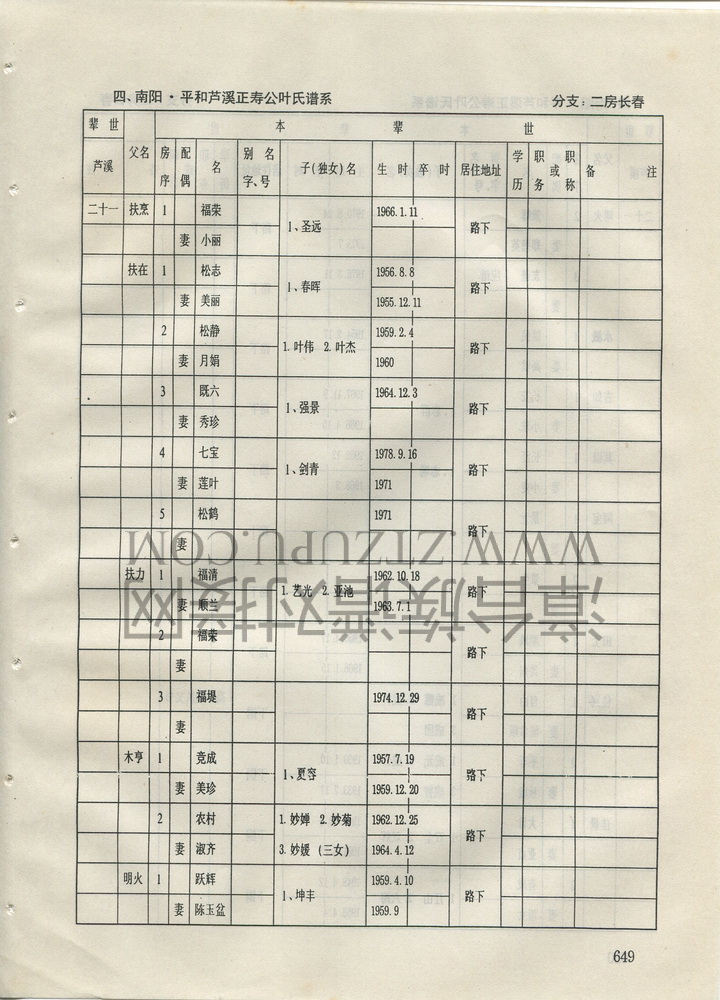 四、南阳·平和芦溪正寿公叶氏谱系 分支：二房长春
辈世 本辈世
芦溪 父名 房序 配偶 名 别名字、号 子(独女)名 生时 卒时 居住地址 学历 职务或职称 备注
二十一 扶烹 1 福荣 1、圣远 1966.1.11 路下
妻 小丽
扶在 1 松志 1、春晖 1956.8.8 路下
妻 美丽 1955.12.11
2 松静 1.叶伟 2.叶杰 1959.2.4 路下
妻 月娟 1960
3 既六 1、强景 1964.12.3 路下
妻 秀珍
4 七宝 1、剑青 1978.9.16 路下
妻 莲叶 1971
5 松鹤 1971 路下
妻
扶力 1 福清 1.艺光 2.亚池 1962.10.18 路下
妻 顺兰 1963.7.1
2 福荣 路下
妻
3 福堤 1974.12.29 路下
妻
木亨 1 竞成 1、夏容 1957.7.19 路下
妻 美珍 1959.12.20
2 农村 1.妙婵 2.妙菊 1962.12.25 路下
妻 淑齐 3.妙媛(三女) 1964.4.12
明火 1 跃辉 1、坤丰 1959.4.10 路下
妻 陈玉盆 1959.9
WWW.ZTZUPU.COM
漳台族谱对接网
649